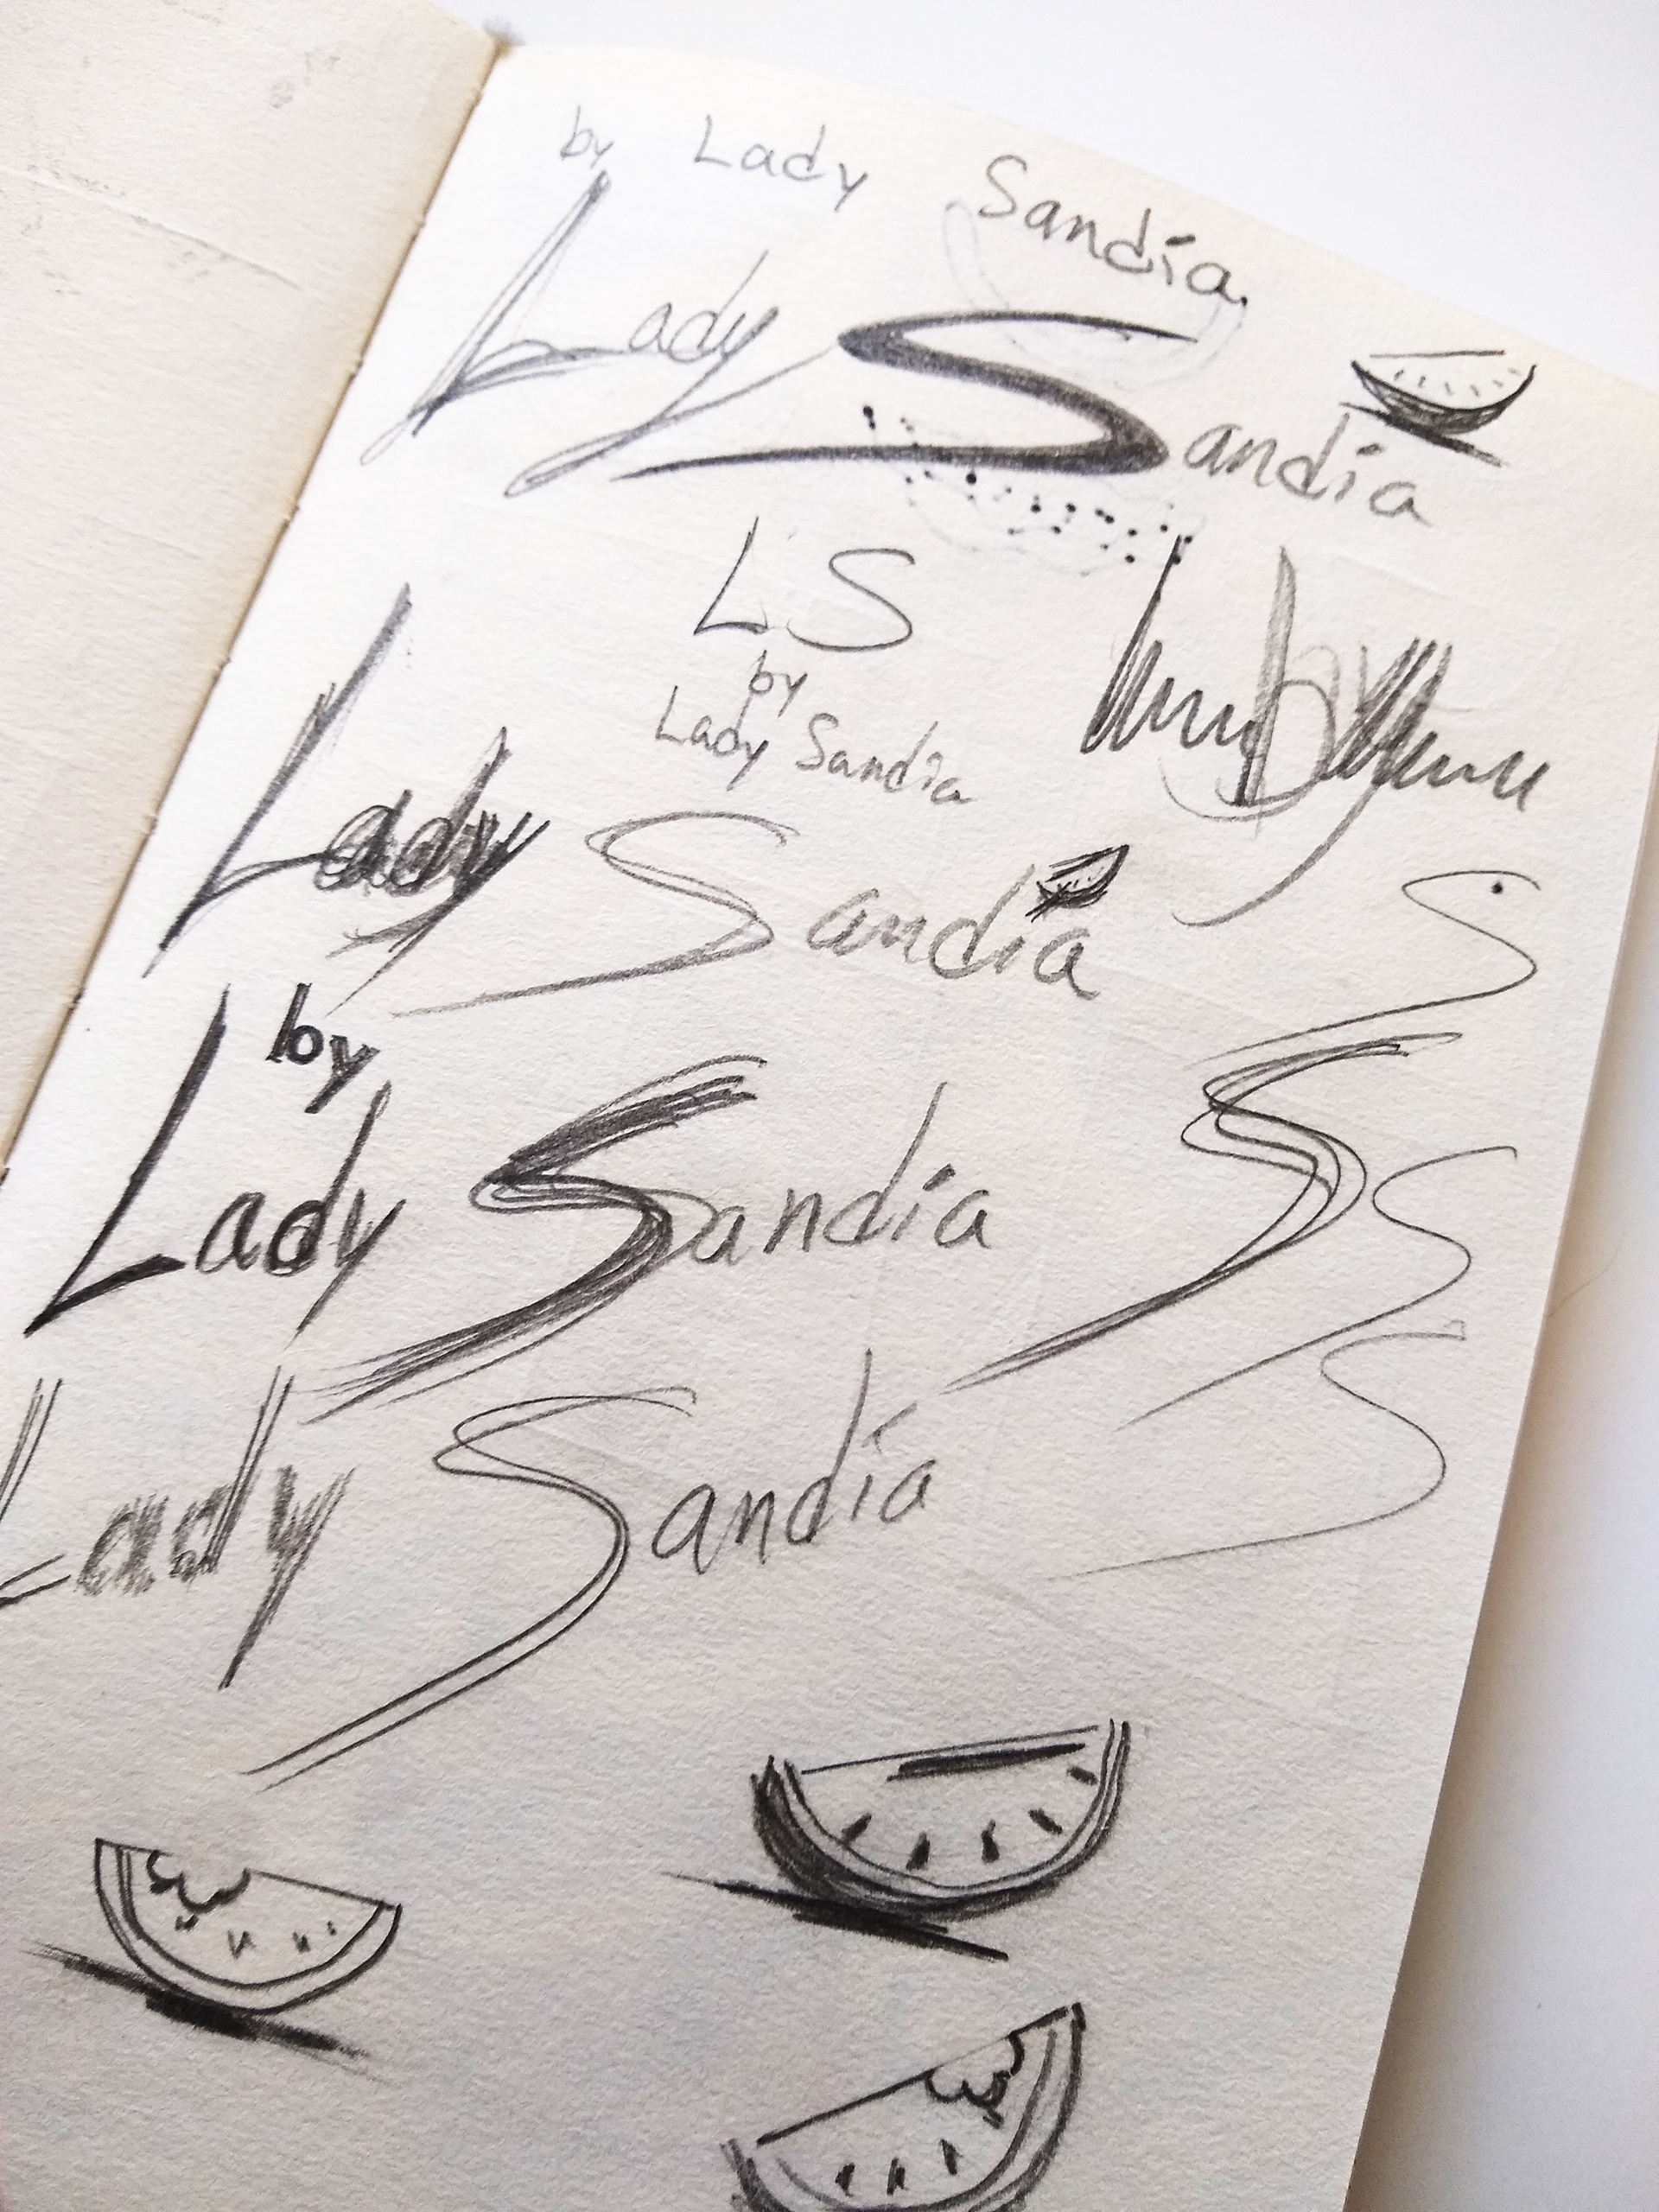 by Lady Sandía
Lady Sandía
LS
by
Lady Sandía
by
Lady Sandía
by
Lady Sandía
S
S
S
S
Lady Sandía